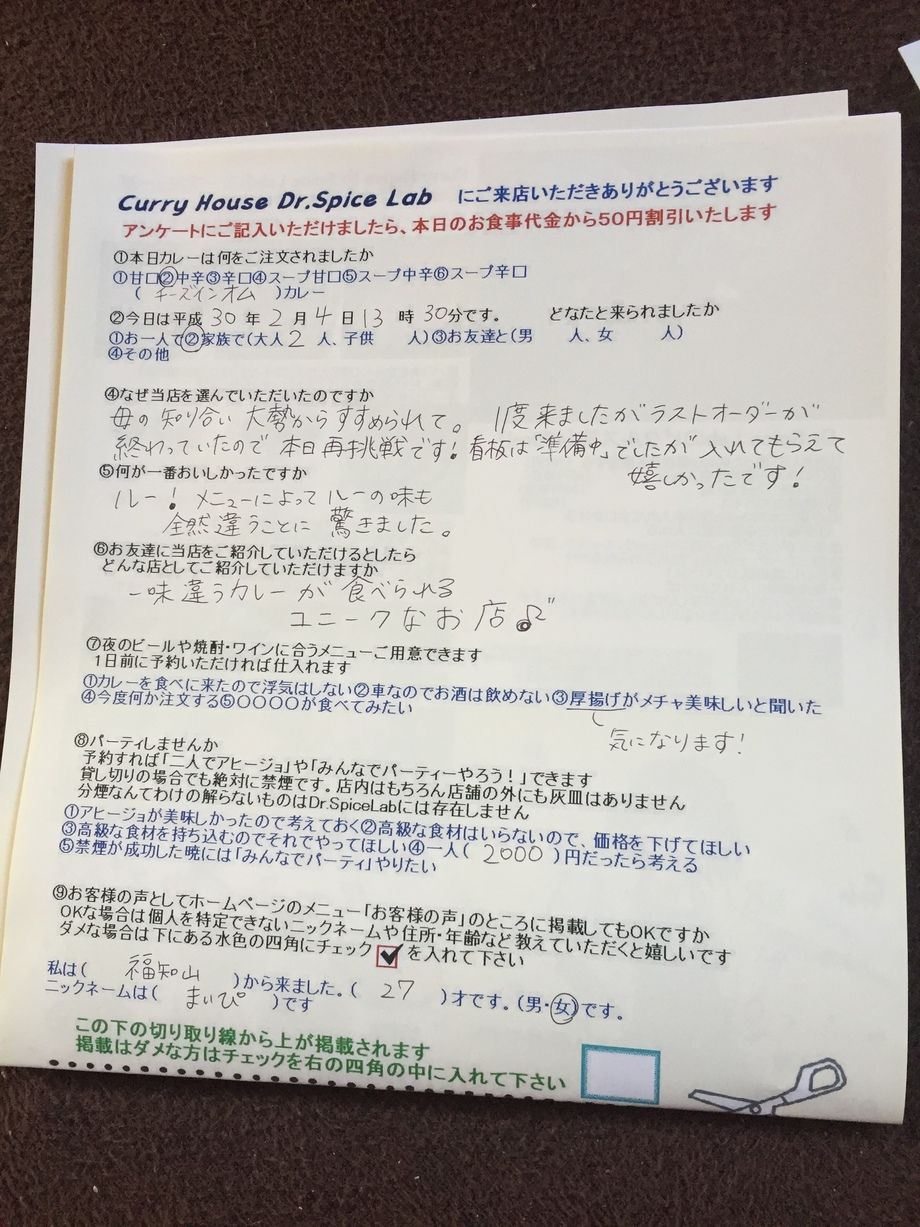 Curry House Dr.Spice Lab にご来店いただきありがとうございます
アンケートにご記入いただけましたら、本日のお食事代金から50円割引いたします
①本日カレーは何をご注文されましたか
①甘口②中辛③辛口④スープ甘口⑤スープ中辛⑥スープ辛口
( チーズインオム )カレー
②今日は平成 30 年 2 月 4 日 13 時 30分です。 どなたと来られましたか
①お一人で②家族で(大人 2 人、子供 人)③お友達と(男 人、女 人)
④その他
④なぜ当店を選んでいただいたのですか
母の知り合い 大勢からすすめられて。 1度来ましたがラストオーダーが
終わっていたので 本日再挑戦です! 看板は「準備中」でしたが入れてもらえて
嬉しかったです!
⑤何が一番おいしかったですか
ルー! メニューによってルーの味も
全然違うことに 驚きました。
⑥お友達に当店をご紹介していただけるとしたら
どんな店としてご紹介していただけますか
一味違うカレーが食べられる
ユニークなお店♪"
⑦夜のビールや焼酎・ワインに合うメニューご用意できます
1日前に予約いただければ仕入れます
①カレーを食べに来たので浮気はしない②車なのでお酒は飲めない③厚揚げがメチャ美味しいと聞いた
④今度何か注文する⑤〇〇〇〇が食べてみたい
気になります!
⑧パーティしませんか
予約すれば「二人でアヒージョ」や「みんなでパーティーやろう!」できます
貸し切りの場合でも絶対に禁煙です。店内はもちろん店舗の外にも灰皿はありません
分煙なんてわけの解らないものはDr.SpiceLabには存在しません
①アヒージョが美味しかったので考えておく②高級な食材はいらないので、価格を下げてほしい
③高級な食材を持ち込むのでそれでやってほしい④一人( 2000 )円だったら考える
⑤禁煙が成功した暁には「みんなでパーティ」やりたい
⑨お客様の声としてホームページのメニュー「お客様の声」のところに掲載してもOKですか
OKな場合は個人を特定できないニックネームや住所・年齢など教えていただくと嬉しいです
ダメな場合は下にある水色の四角にチェック✔を入れて下さい
私は( 福知山 )から来ました。( 27 )才です。(男・女)です。
ニックネームは( まいぴ )です
この下の切り取り線から上が掲載されます
掲載はダメな方はチェックを右の四角の中に入れて下さい